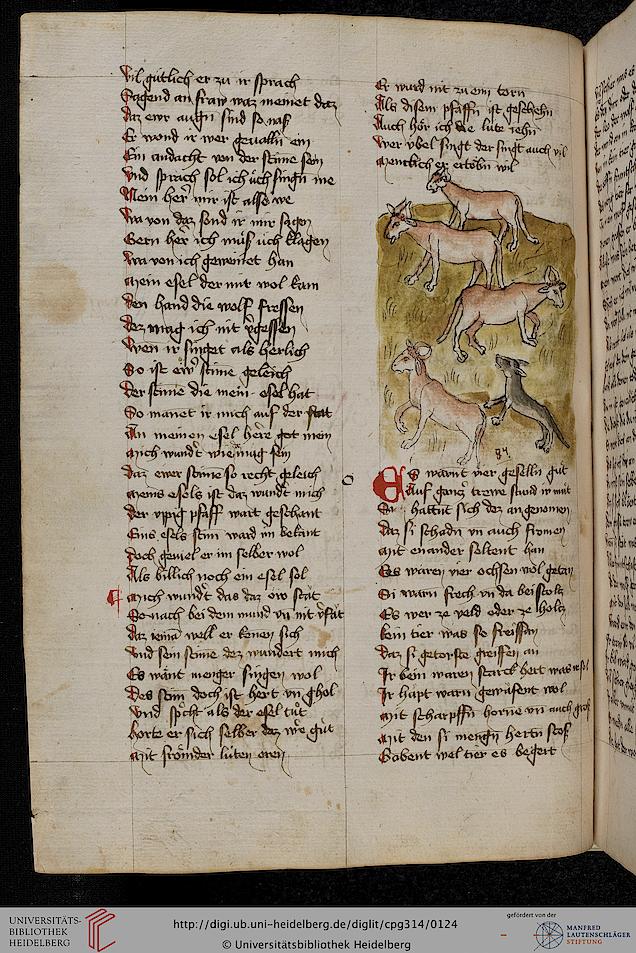 Vil gůtlich er zu ir sprach
Sagend an fraw waz meinet daz
daz ewr augñ sind so naß
Er wond ir wer geualln ein
Ein andacht von der stime sein
Vnd sprach sol ich üch singñ me
Nein her mir ist also we
Wa von daz sond ir mir sagen
Gern her ich můs üch klagen
Wa von ich geweinet han
Mein esel der mit wol kam
den hand die wolf fressen
Dez mag ich nit vgessen
Wen ir singet als herlich
So ist ewr stime geleich
der stime die mein esel hat
So manet ir mich auf der stat
An meinen esel here got mein
Mich wundt wie mag sein
daz ewer stime so recht geleich
Meins esels ist daz wundt mich
der üpig pfaff wart geschant
Eins esels stim ward im bekant
Doch geuiel er im selber wol
Als billich noch ein esel sol
Mich wundt das daz orr stat
So nach bei dem mund vn nit vstat
daz iema well er kenen sich
Vnd sein stime dez wundert mich
Es want menger singen wol
Des stim doch ist hert vn hol
Vnd spcht als der esel tůt
horte er sich selber daz wer gůt
Mit frömder lüten oren
Er ward nit zu eim torn
Als disem pfaffn ist geschehn
Auch hör ich die lüte iehn
Wer übel singt der singt auch vil
Mentlich er ertobn wil
84
ES warnt vier geselln gůt
Auf ganz trewe stund ir můt
Si hattnt sich dez angenomen
daz si schadn vn auch fromen
Mit enander soltent han
Es waren vier ochsen wol getan
Si warn frech vn da bei stoltz
Es wer ze veld oder ze holtz
kein tier was so freissan
Daz si getorste greiffen an
Ir bein waren starck hert was ir fel
Ir hapt warn gewafent wol
Mit scharpffn horne vn auch groß
Mit den si mengn hertn stoß
Gabent wel tier es begert
UNIVERSITÄTS-
BIBLIOTHEK
HEIDELBERG
http://digi.ub.uni-heidelberg.de/diglit/cpg314/0124
© Universitätsbibliothek Heidelberg
gefördert von der
MANFRED
LAUTENSCHLÄGER
STIFTUNG